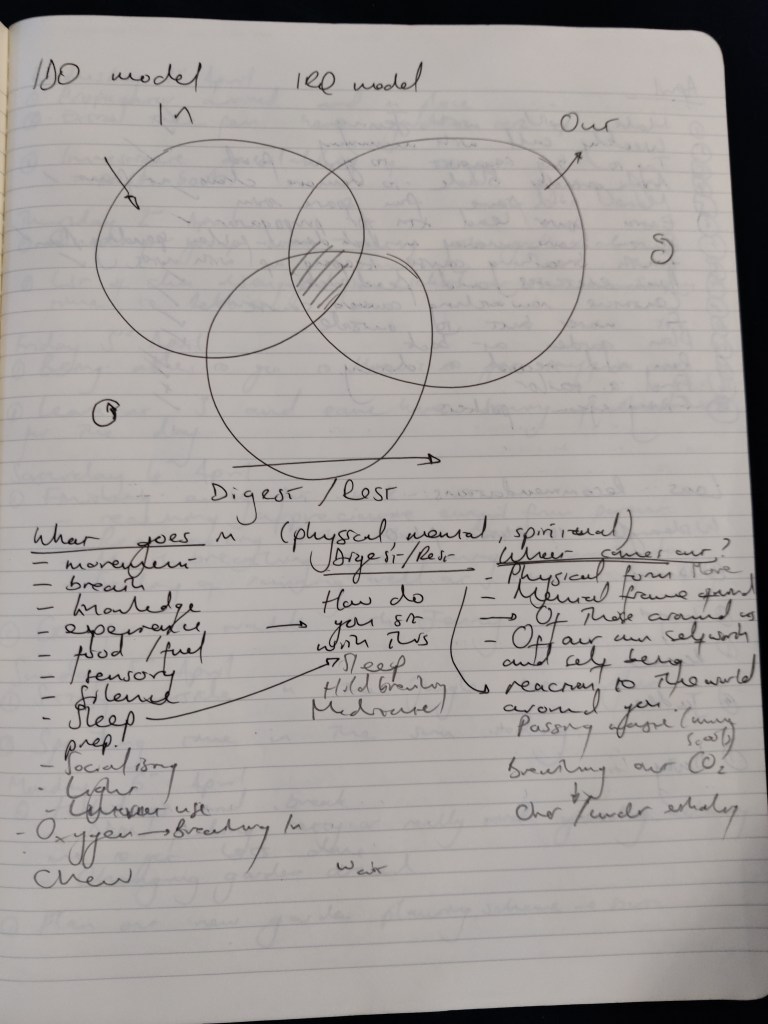 IDO model IRO model
In
Out
Digest / Rest
What goes in (physical, mental, spiritual)
- movement
- breath
- knowledge
- experience
- food / fuel
- sensory
- Silence
- Sleep
prep.
- Socialising
- Light
- use
- Oxygen → Breathing In
Chew
Digest / Rest
How do
→ you sit
with this
Sleep
Hold breathing
Wait
What comes out?
- Physical form
- Mental frame
→ Of Those around us
- Of our own self worth
and self being
reaction to The world
around you.
Passing
Breathing out CO2
exhaling